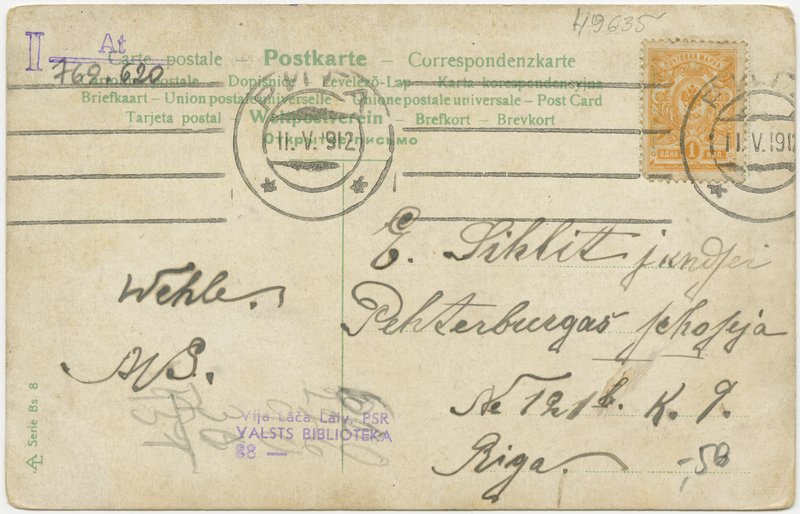 49635
II At
762.620
Carte postale – Postkarte – Correspondenzkarte
Postale – Dopisnice – Levelező-Lap – Karta korespondencyjna
Briefkaart – Union postale universelle – Unione postale universale – Post Card
Tarjeta postal – Weltpostverein – Brefkort – Brevkort
Открытое письмо
11.V.1912
11.V.191
ПОЧТОВАЯ МАРКА
ОДНА 1 КОП.
E. Siklit jundsei
Wehle.
Pehterburgas schoseja
A/S.
№ 121 b. K. 9.
Viļa Lāča Latv. PSR
VALSTS BIBLIOTEKA
68 —
Riga. -,50
Serie Bs. 8